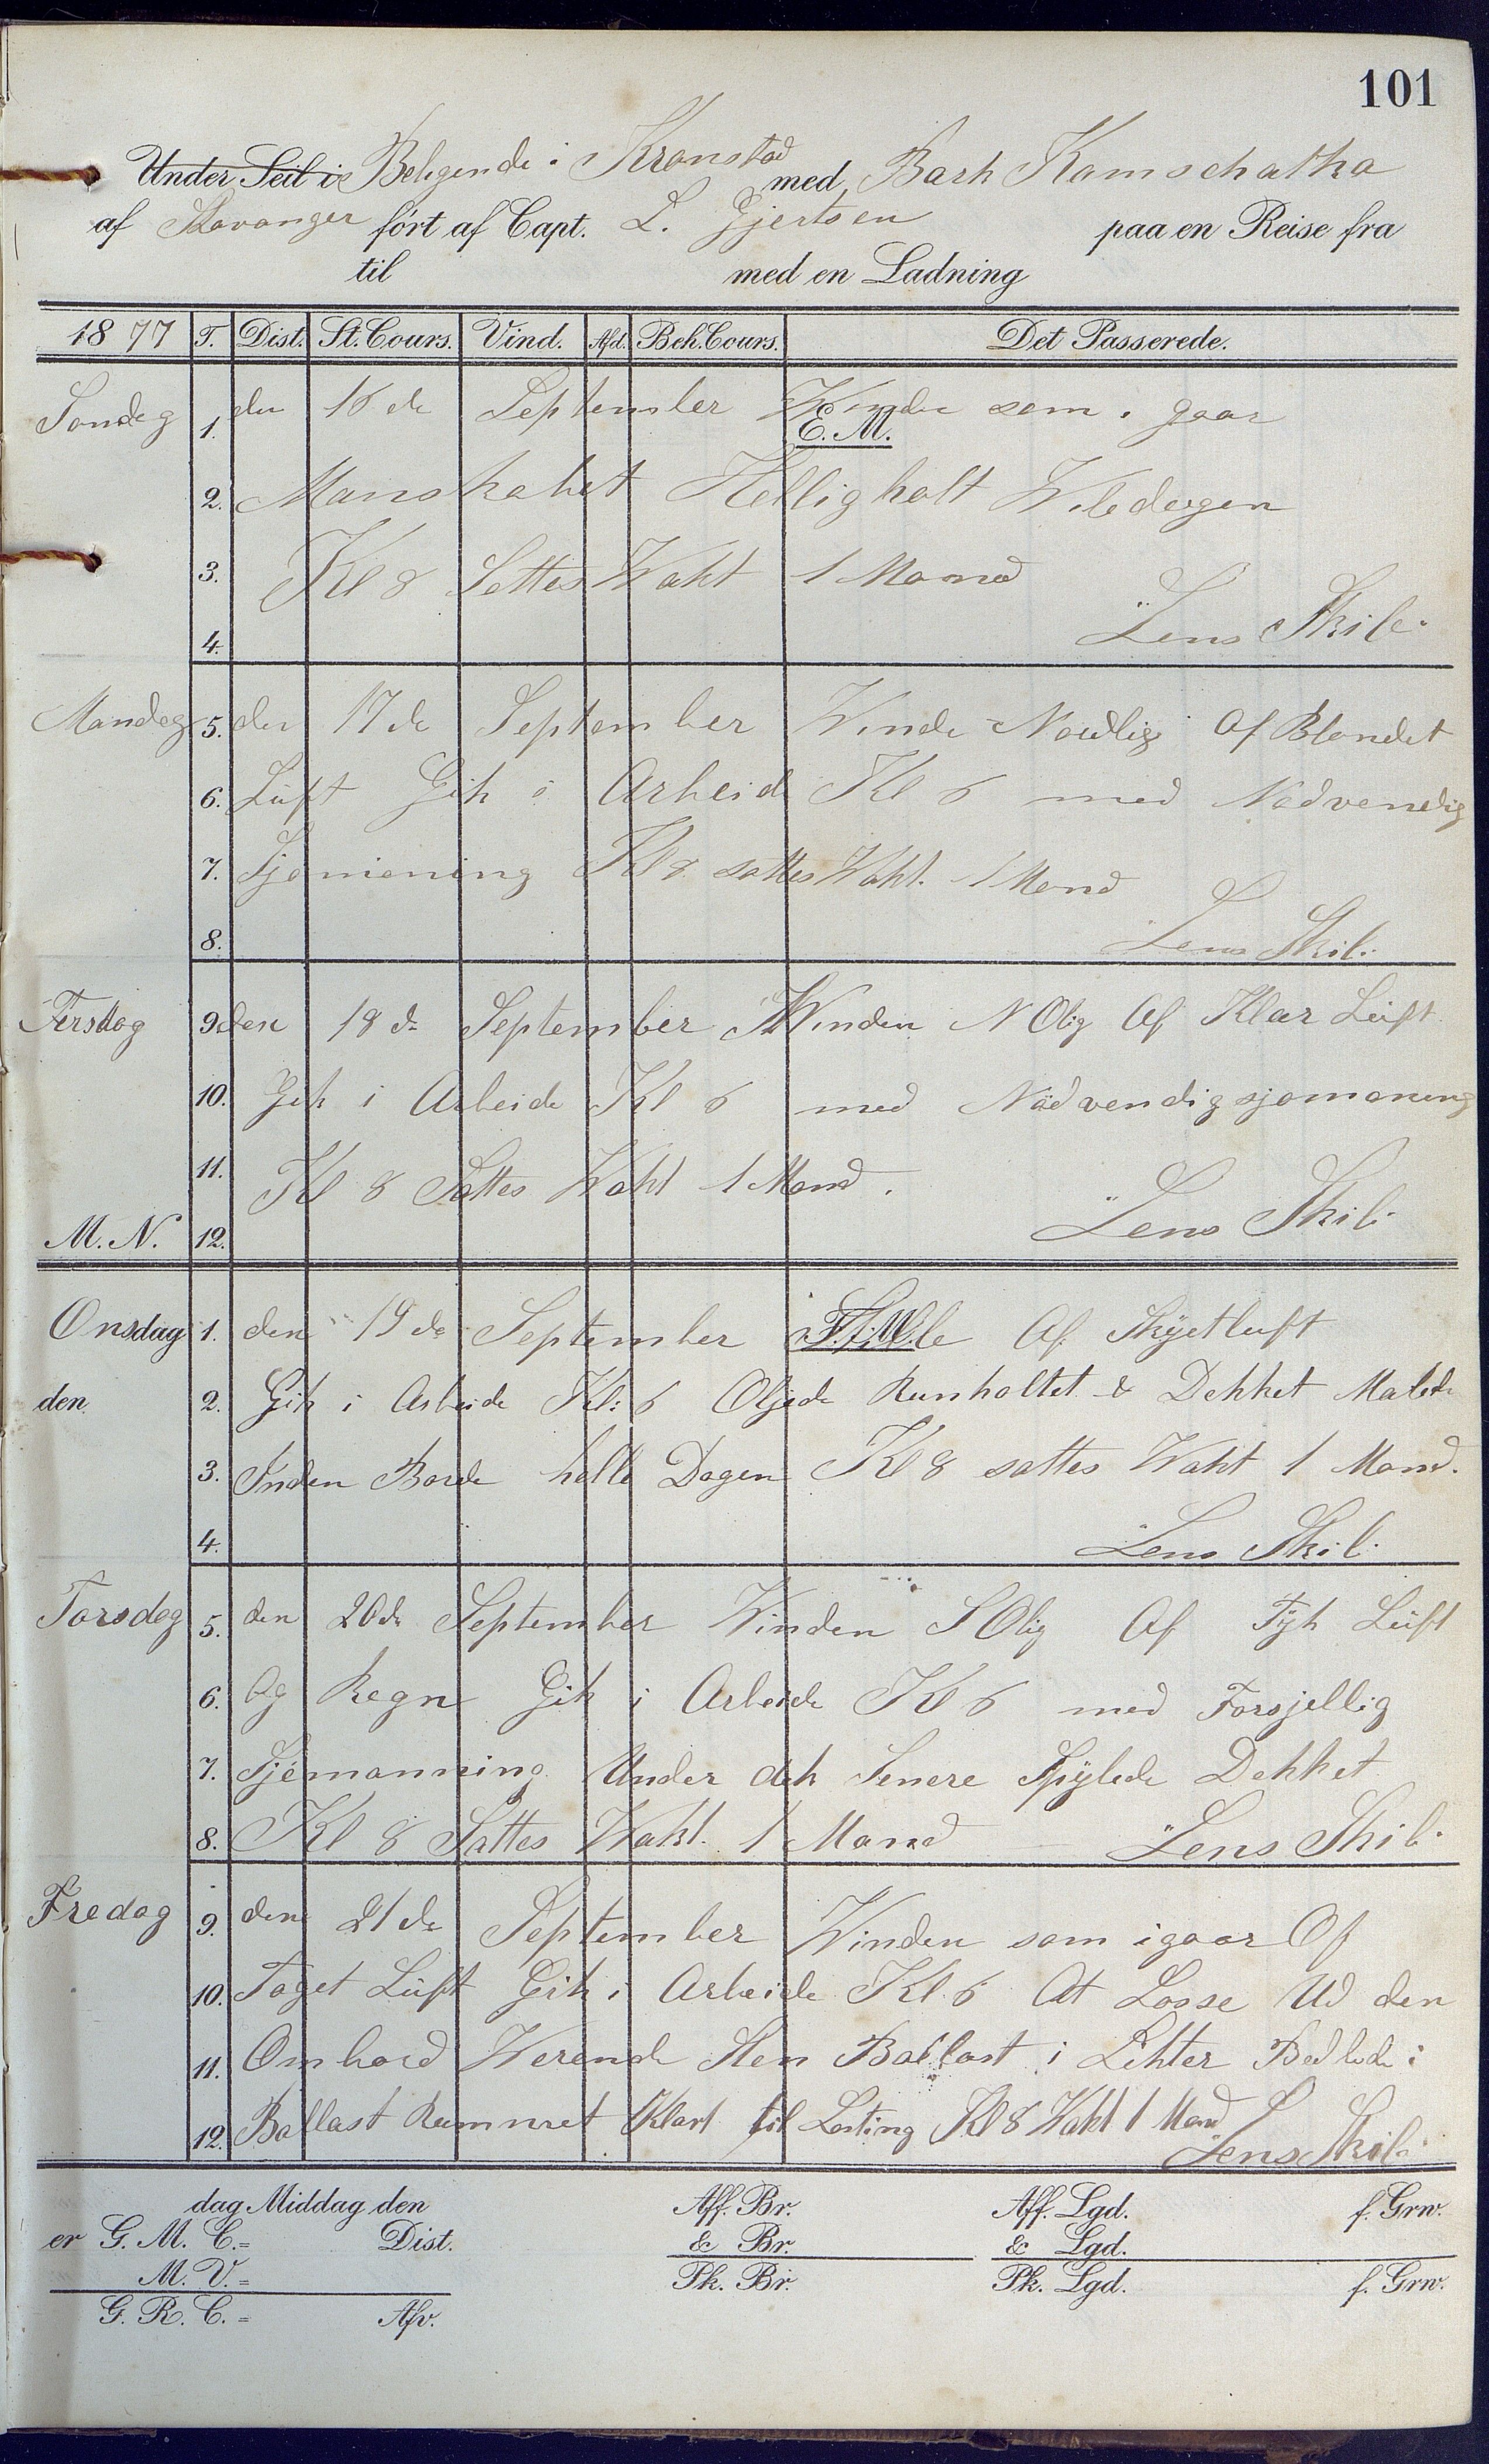 101
Under Seil i Belegende i Kronstad med Bark Kamschatka
af Stavanger ført af Capt. L. Gjertsen paa en Reise fra
til med en Ladning
1877 T. Dist. St. Cours. Vind. Afd. Beh. Cours. Det Passerede.
Sondag 1. den 16 de September Winden som i gaar
E. M.
2. Manskabet Helligholt Viledagen
3. Kl 8 Sattes Wakt 1 Mand
4. Lens Skib
Mandag 5. den 17 de September Winde Nordlig Af Blandet
6. Luft Gik i Arbeide Kl 6 med Nødvendig
7. Sjømaning Kl 8 sattes Wakt. 1 Mand
8. Lens Skib.
Tersdag 9. den 18 de September Winden N Olig Af Klar Luft
10. Gik i Arbeide Kl 6 med Nødvendig sjømaning
11. Kl 8 Sattes Wakt 1 Mand.
M. N. 12. Lens Skib
Onsdag 1. den 19 de September Stille Af Skyetluft
F. M.
den 2. Gik i Arbeide Kl: 6 Oljede Runholtet & Dekket Malede
3. Inden Borde hele Dagen Kl 8 sattes Wakt 1 Mand.
4. Lens Skib.
Torsdag 5. den 20 de September Winden S Olig Af Tyk Luft
6. Og Regn Gik i Arbeide Kl 6 med Forsjellig
7. Sjømanning Under dek Senere Spylede Dekket
8. Kl 8 Sattes Wakt. 1 Mand Lens Skib.
Fredag 9. den 21 de September Winden som igaar Of
10. Taget Luft Gik i Arbeide Kl. 6 At Losse Ud den
11. Ombord Werende Sten Ballast i Lekter
12. Ballast Rummet Klart til Lasting Kl 8 Wakt 1 Mand Lens Skib.
dag Middag den Aff. Br. Aff. Lgd. f. Grw.
er G. M. C. = Dist. & Br. & Lgd.
M. V. = Pk. Br. Pk. Lgd. f. Grw.
G. R. C. = Afv.